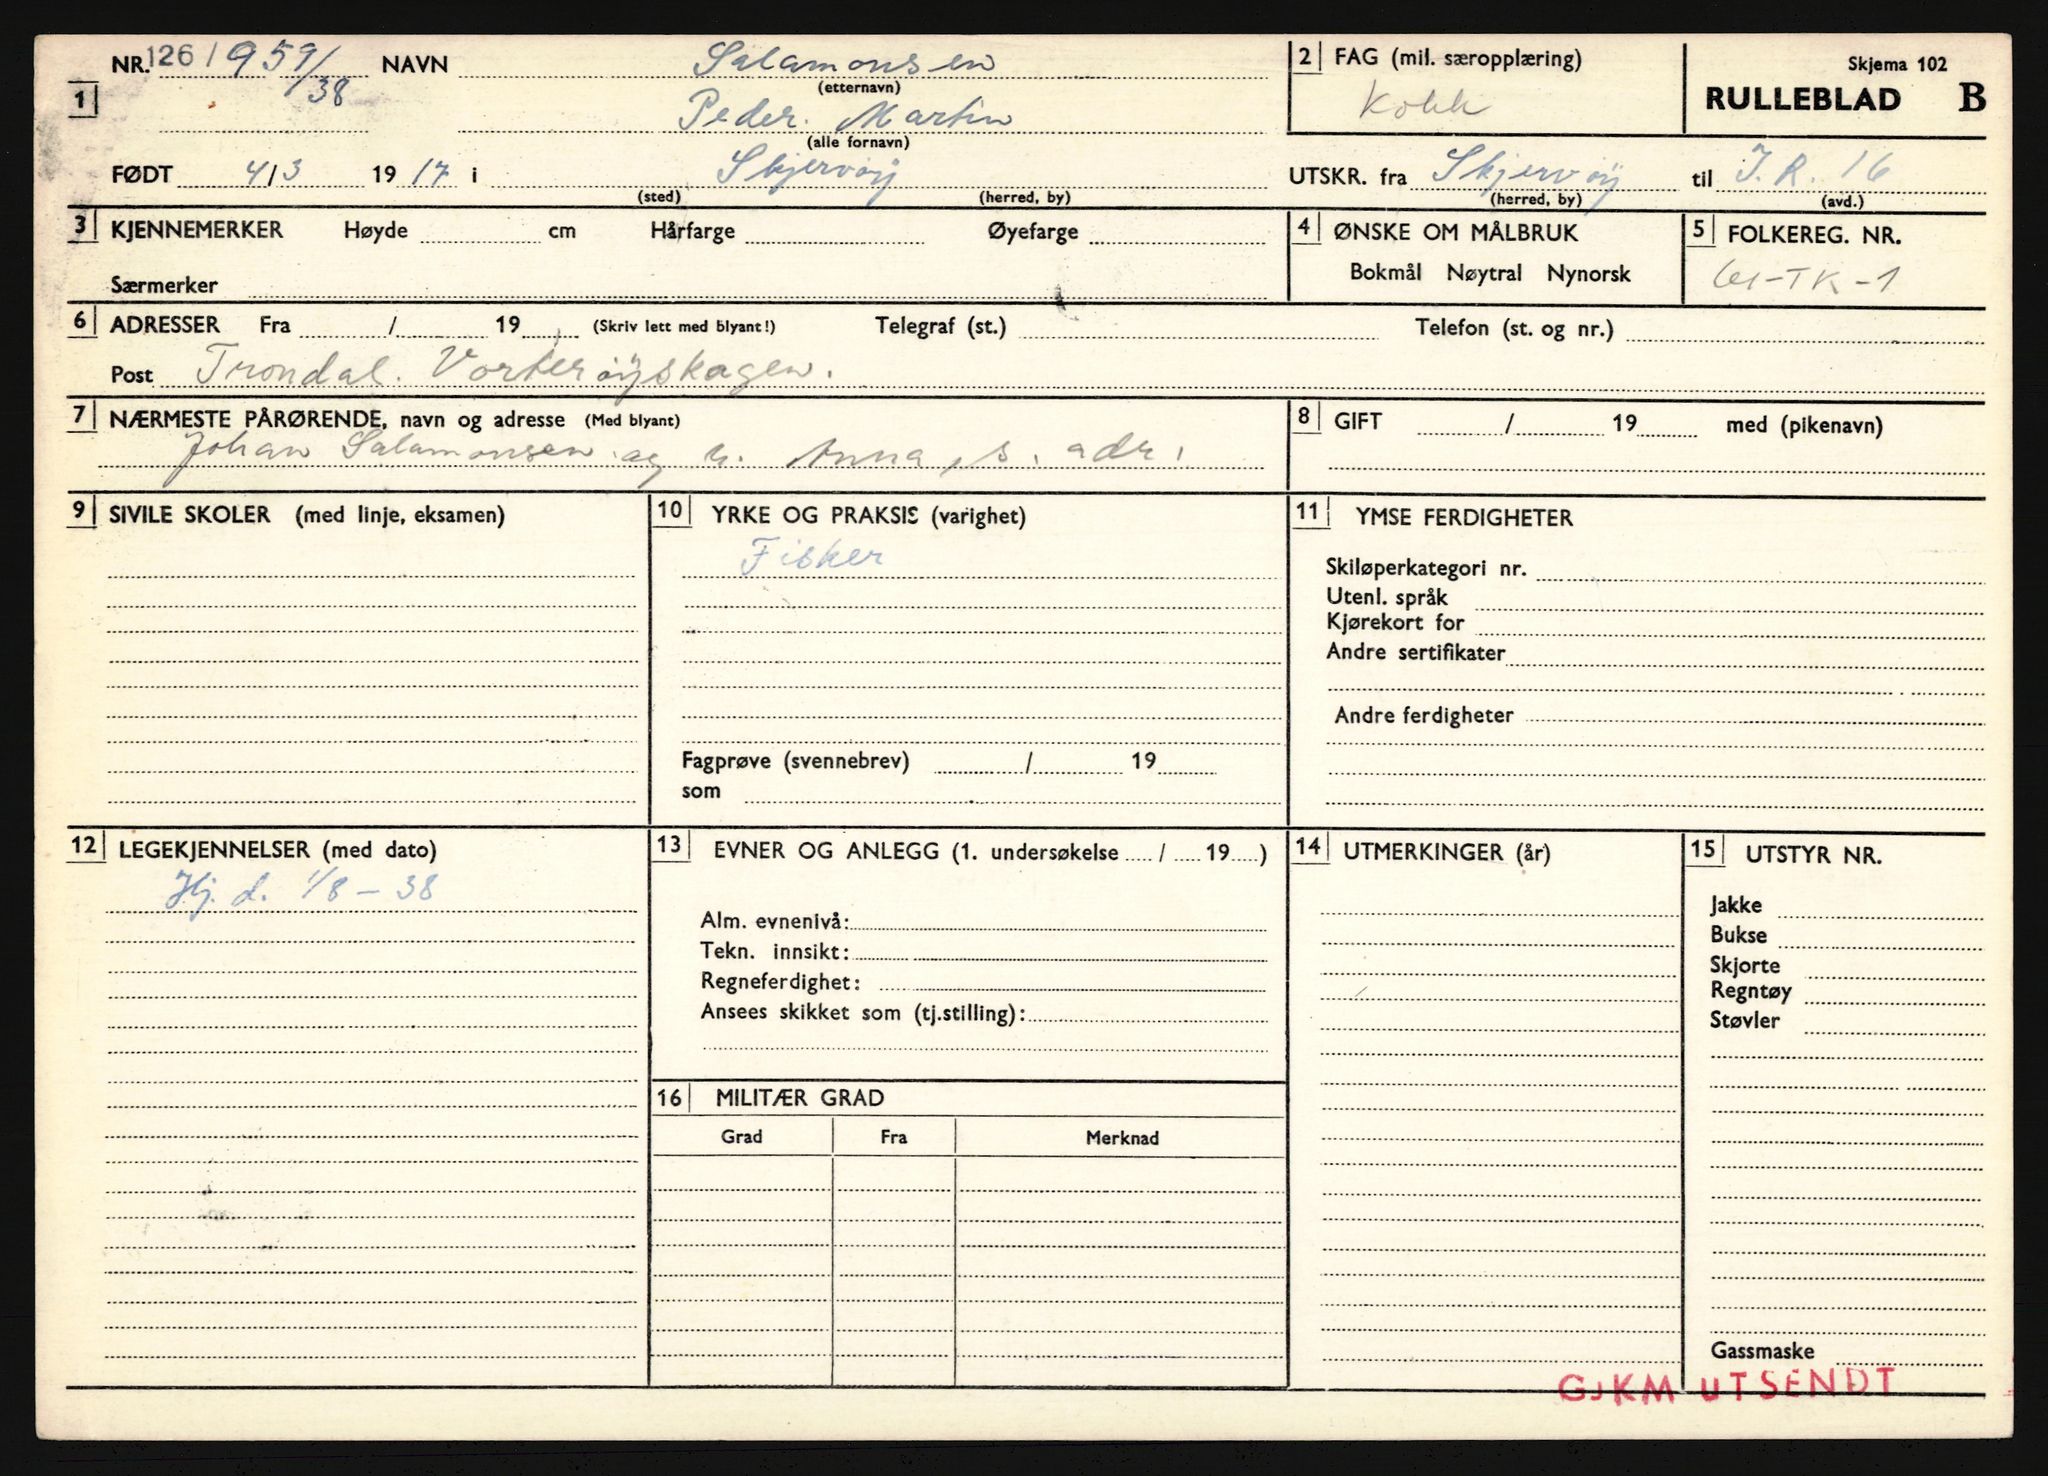 NR. 126/959/38 NAVN Salamonsen 2 FAG (mil. særopplæring) Skjema 102
(etternavn)
1 Peder. Martin Kokk RULLEBLAD B
(alle fornavn)
FØDT 4/3 19 17 i Skjervøy UTSKR. fra Skjervøy til I.R. 16
(sted) (herred, by) (herred, by) (avd.)
3 KJENNEMERKER Høyde cm Hårfarge Øyefarge 4 ØNSKE OM MÅLBRUK 5 FOLKEREG. NR.
Særmerker Bokmål Nøytral Nynorsk 61-TK-1
6 ADRESSER Fra / 19 (Skriv lett med blyant!) Telegraf (st.) Telefon (st. og nr.)
Post Trondal. Vorterøyskagen.
7 NÆRMESTE PÅRØRENDE, navn og adresse (Med blyant) 8 GIFT / 19 med (pikenavn)
Johan Salamonsen og h. Anna, s. adr.
9 SIVILE SKOLER (med linje, eksamen) 10 YRKE OG PRAKSIS (varighet) 11 YMSE FERDIGHETER
Fisker
Skiløperkategori nr.
Utenl. språk
Kjørekort for
Andre sertifikater
Andre ferdigheter
Fagprøve (svennebrev) / 19
som
12 LEGEKJENNELSER (med dato) 13 EVNER OG ANLEGG (1. undersøkelse / 19 ) 14 UTMERKINGER (år) 15 UTSTYR NR.
Hj. d. 1/8-38
Alm. evnenivå:
Tekn. innsikt:
Regneferdighet:
Ansees skikket som (tj.stilling):
Jakke
Bukse
Skjorte
Regntøy
Støvler
16 MILITÆR GRAD
Grad Fra Merknad
Gassmaske
GJKM UTSENDT